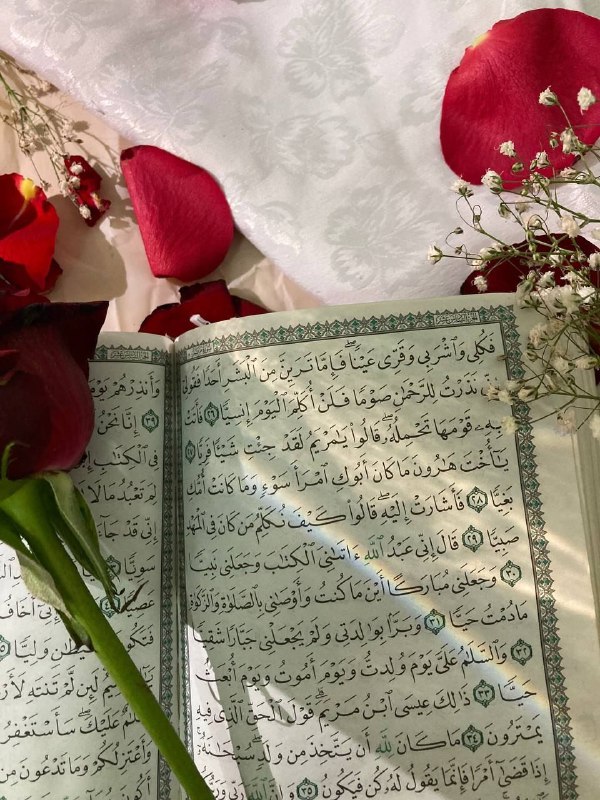 فَكُلِى وَٱشْرَبِى وَقَرِّى عَيْنًا ۖ فَإِمَّا تَرَيِنَّ مِنَ ٱلْبَشَرِ أَحَدًا فَقُولِىٓ
نَذَرْتُ لِلرَّحْمَٰنِ صَوْمًا فَلَنْ أُكَلِّمَ ٱلْيَوْمَ إِنسِيًّا ٢٦ فَأَتَتْ
بِهِۦ قَوْمَهَا تَحْمِلُهُۥ ۖ قَالُوا۟ يَٰمَرْيَمُ لَقَدْ جِئْتِ شَيْـًٔا فَرِيًّا ٢٧
يَٰٓأُخْتَ هَٰرُونَ مَا كَانَ أَبُوكِ ٱمْرَأَ سَوْءٍ وَمَا كَانَتْ أُمُّكِ
بَغِيًّا ٢٨ فَأَشَارَتْ إِلَيْهِ ۖ قَالُوا۟ كَيْفَ نُكَلِّمُ مَن كَانَ فِى ٱلْمَهْدِ
صَبِيًّا ٢٩ قَالَ إِنِّى عَبْدُ ٱللَّهِ ءَاتَىٰنِىَ ٱلْكِتَٰبَ وَجَعَلَنِى نَبِيًّا
٣٠ وَجَعَلَنِى مُبَارَكًا أَيْنَ مَا كُنتُ وَأَوْصَٰنِى بِٱلصَّلَوٰةِ وَٱلزَّكَوٰةِ
مَا دُمْتُ حَيًّا ٣١ وَبَرًّۢا بِوَٰلِدَتِى وَلَمْ يَجْعَلْنِى جَبَّارًا شَقِيًّا
٣٢ وَٱلسَّلَٰمُ عَلَىَّ يَوْمَ وُلِدتُّ وَيَوْمَ أَمُوتُ وَيَوْمَ أُبْعَثُ
حَيًّا ٣٣ ذَٰلِكَ عِيسَى ٱبْنُ مَرْيَمَ ۚ قَوْلَ ٱلْحَقِّ ٱلَّذِى فِيهِ
يَمْتَرُونَ ٣٤ مَا كَانَ لِلَّهِ أَن يَتَّخِذَ مِن وَلَدٍ ۖ سُبْحَٰنَهُۥٓ ۚ
إِذَا قَضَىٰٓ أَمْرًا فَإِنَّمَا يَقُولُ لَهُۥ كُن فَيَكُونُ ٣٥ وَإِنَّ ٱللَّهَ رَبِّى
وَأَنذِرْهُمْ يَوْمَ
٣٩ إِنَّا نَحْنُ
فِى ٱلْكِتَٰبِ
لِمَ تَعْبُدُ مَا لَا
إِنِّى قَدْ
سَوِيًّا
عَصِيًّا ٤٤ إِنِّىٓ أَخَافُ
فَتَكُونَ وَلِيًّا
لَئِن لَّمْ تَنتَهِ
عَلَيْكَ ۖ سَأَسْتَغْفِرُ
وَأَعْتَزِلُكُمْ وَمَا تَدْعُونَ مِن